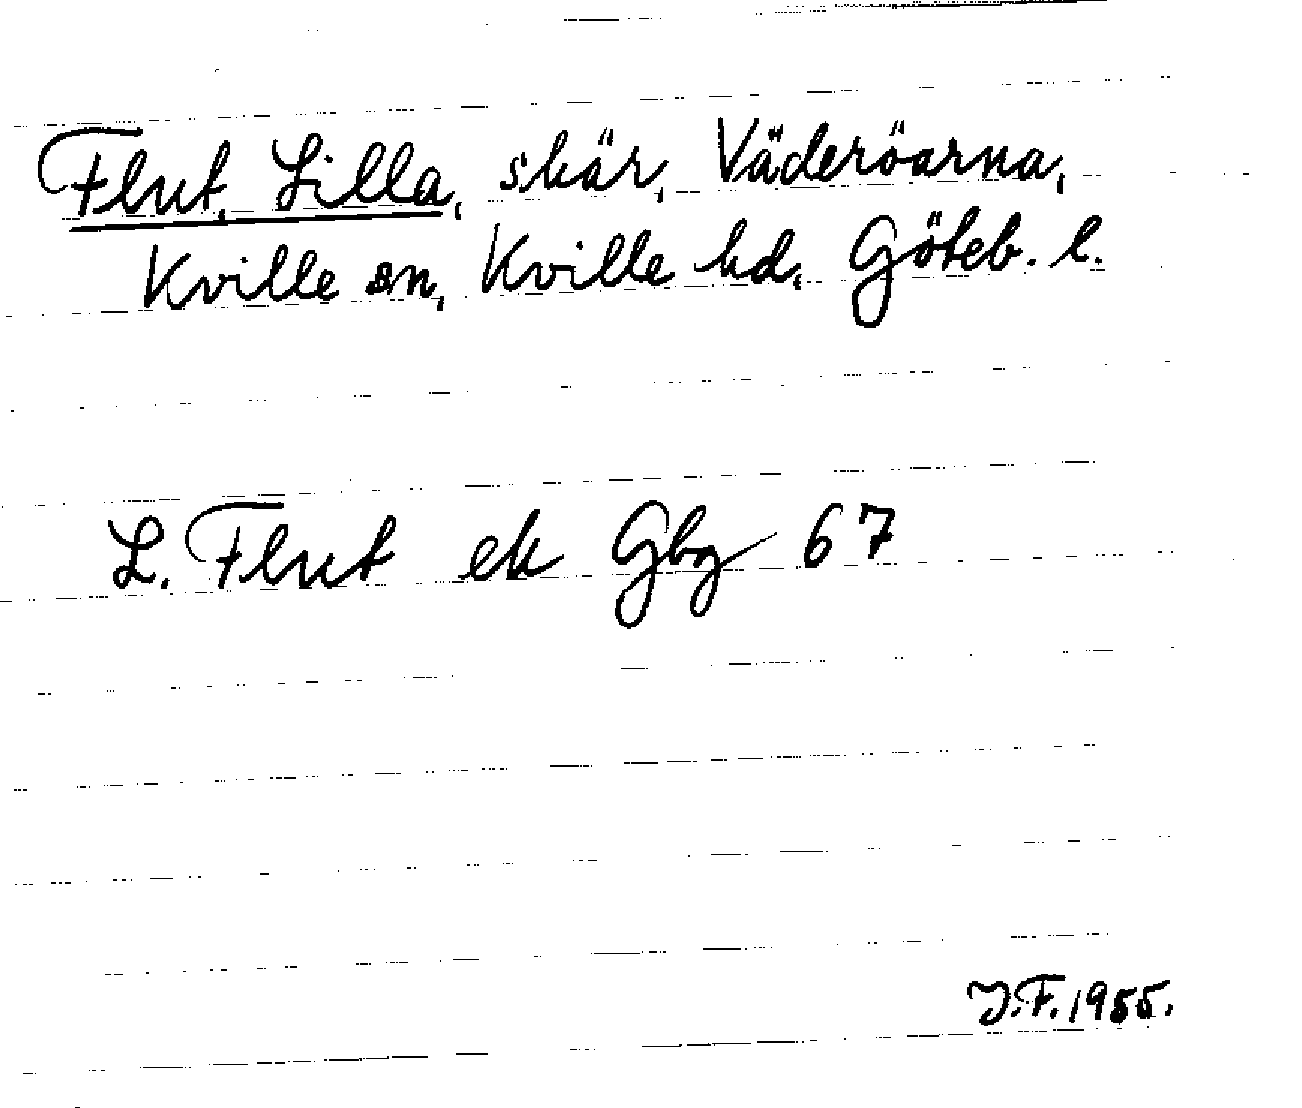 Flut, Lilla, skär, Väderöarna,
Kville sn, Kville hd, Göteb. l.
L. Flut ek Gbg 67
J.F. 1955.